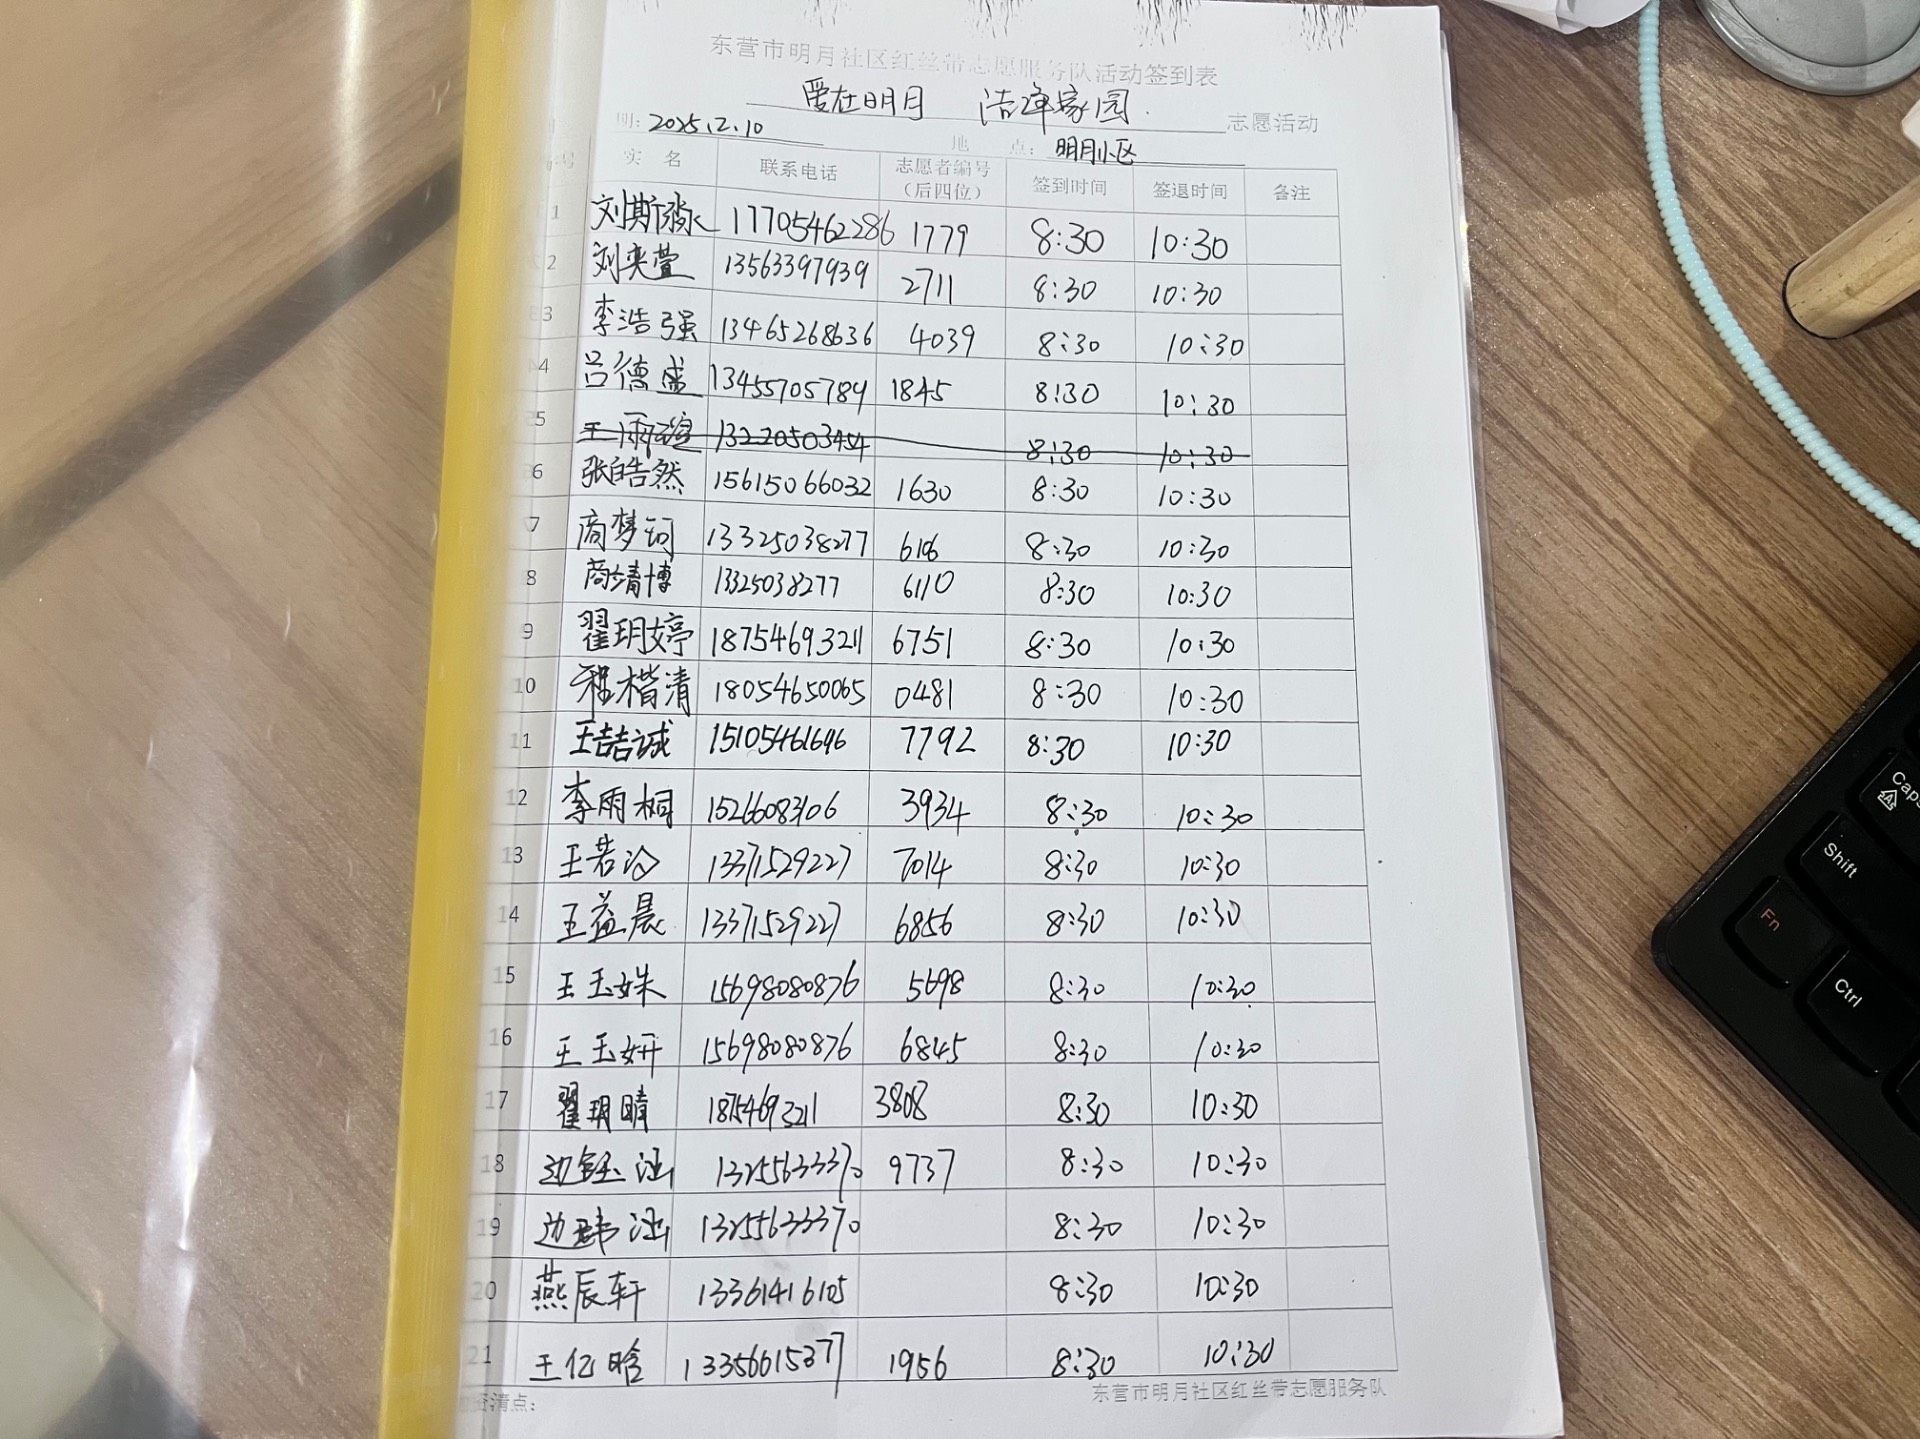 东营市明月社区红丝带志愿服务队活动签到表
爱在明月 洁净家园 志愿活动
期: 2025.2.10 地 点: 明月小区
号 实 名 联系电话 志愿者编号（后四位） 签到时间 签退时间 备注
1 刘斯淼 17705462286 1779 8:30 10:30
2 刘奕萱 13563397939 2711 8:30 10:30
3 李浩强 13465268636 4039 8:30 10:30
4 吕德盛 13455705789 1845 8:30 10:30
5 王雨瑄 13220503454 8:30 10:30
6 张皓然 15615066032 1630 8:30 10:30
7 商梦珂 13325038277 6106 8:30 10:30
8 商靖博 13325038277 6110 8:30 10:30
9 翟玥婷 18754693211 6751 8:30 10:30
10 程楷清 18054650065 0481 8:30 10:30
11 王喆诚 15105461696 7792 8:30 10:30
12 李雨桐 15266083106 3934 8:30 10:30
13 王若汐 13371529227 7014 8:30 10:30
14 王益晨 13371529227 6856 8:30 10:30
15 王玉姝 15698080876 5698 8:30 10:30
16 王玉妍 15698080876 6845 8:30 10:30
17 翟玥晴 18754693211 3808 8:30 10:30
18 边钰涵 13255633370 9737 8:30 10:30
19 边 涵 13255633370 8:30 10:30
20 燕辰轩 13361416105 8:30 10:30
21 王亿晗 13356615377 1956 8:30 10:30
资清点： 东营市明月社区红丝带志愿服务队
Caps
Shift
Fn
Ctrl